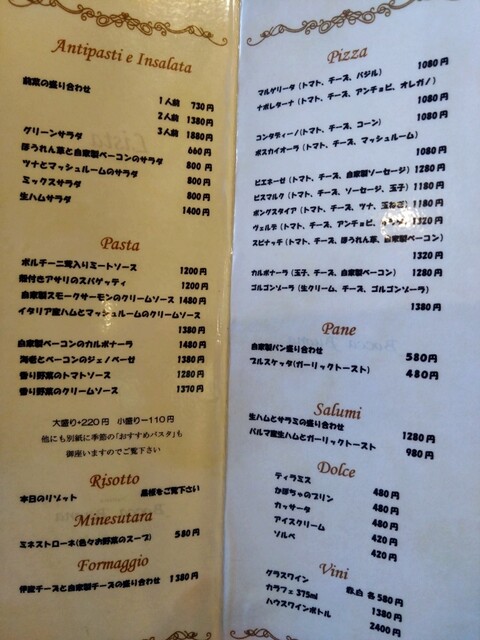 Antipasti e Insalata
前菜の盛り合わせ
1人前 730円
2人前 1380円
3人前 1880円
グリーンサラダ 660円
ほうれん草と自家製ベーコンのサラダ 800円
ツナとマッシュルームのサラダ 800円
ミックスサラダ 800円
生ハムサラダ 1400円
Pasta
ポルチーニ茸入りミートソース 1200円
殻付きアサリのスパゲッティ 1200円
自家製スモークサーモンのクリームソース 1480円
イタリア産ハムとマッシュルームのクリームソース
1380円
自家製ベーコンのカルボナーラ 1480円
海老とベーコンのジェノベーゼ 1380円
香り野菜のトマトソース 1280円
香り野菜のクリームソース 1370円
大盛り+220円 小盛りー110円
他にも別紙に季節の「おすすめパスタ」も
御座いますのでご覧下さい
Risotto
本日のリゾット 黒板をご覧下さい
Minesutara
ミネストローネ(色々お野菜のスープ) 580円
Formaggio
伊産チーズと自家製チーズの盛り合わせ 1380円
Pizza
1080円
マルゲリータ(トマト、チーズ、バジル)
1080円
ナポレターナ(トマト、チーズ、アンチョビ、オレガノ)
1080円
コンタディーノ(トマト、チーズ、コーン) 1080円
ボスカイオーラ(トマト、チーズ、マッシュルーム)
1080円
ピエネーゼ(トマト、チーズ、自家製ソーセージ) 1280円
ビスマルク(トマト、チーズ、ソーセージ、玉子) 1180円
ポングスタイア(トマト、チーズ、ツナ、玉ねぎ) 1180円
ヴェルデ(トマト、チーズ、アンチョビ、 1320円
スピナッチ(トマト、チーズ、ほうれん草、自家製ベーコン)
1320円
カルボナーラ(玉子、チーズ、自家製ベーコン) 1280円
ゴルゴンゾーラ(生クリーム、チーズ、ゴルゴンゾーラ)
1380円
Pane
自家製パン盛り合わせ 580円
ブルスケッタ(ガーリックトースト) 480円
Salumi
生ハムとサラミの盛り合わせ 1280円
パルマ産生ハムとガーリックトースト 980円
Dolce
ティラミス 480円
かぼちゃのプリン 480円
カッサータ 480円
アイスクリーム 420円
ソルベ 420円
Vini
グラスワイン 赤,白 各580円
カラフェ 375ml 1380円
ハウスワインボトル 2400円